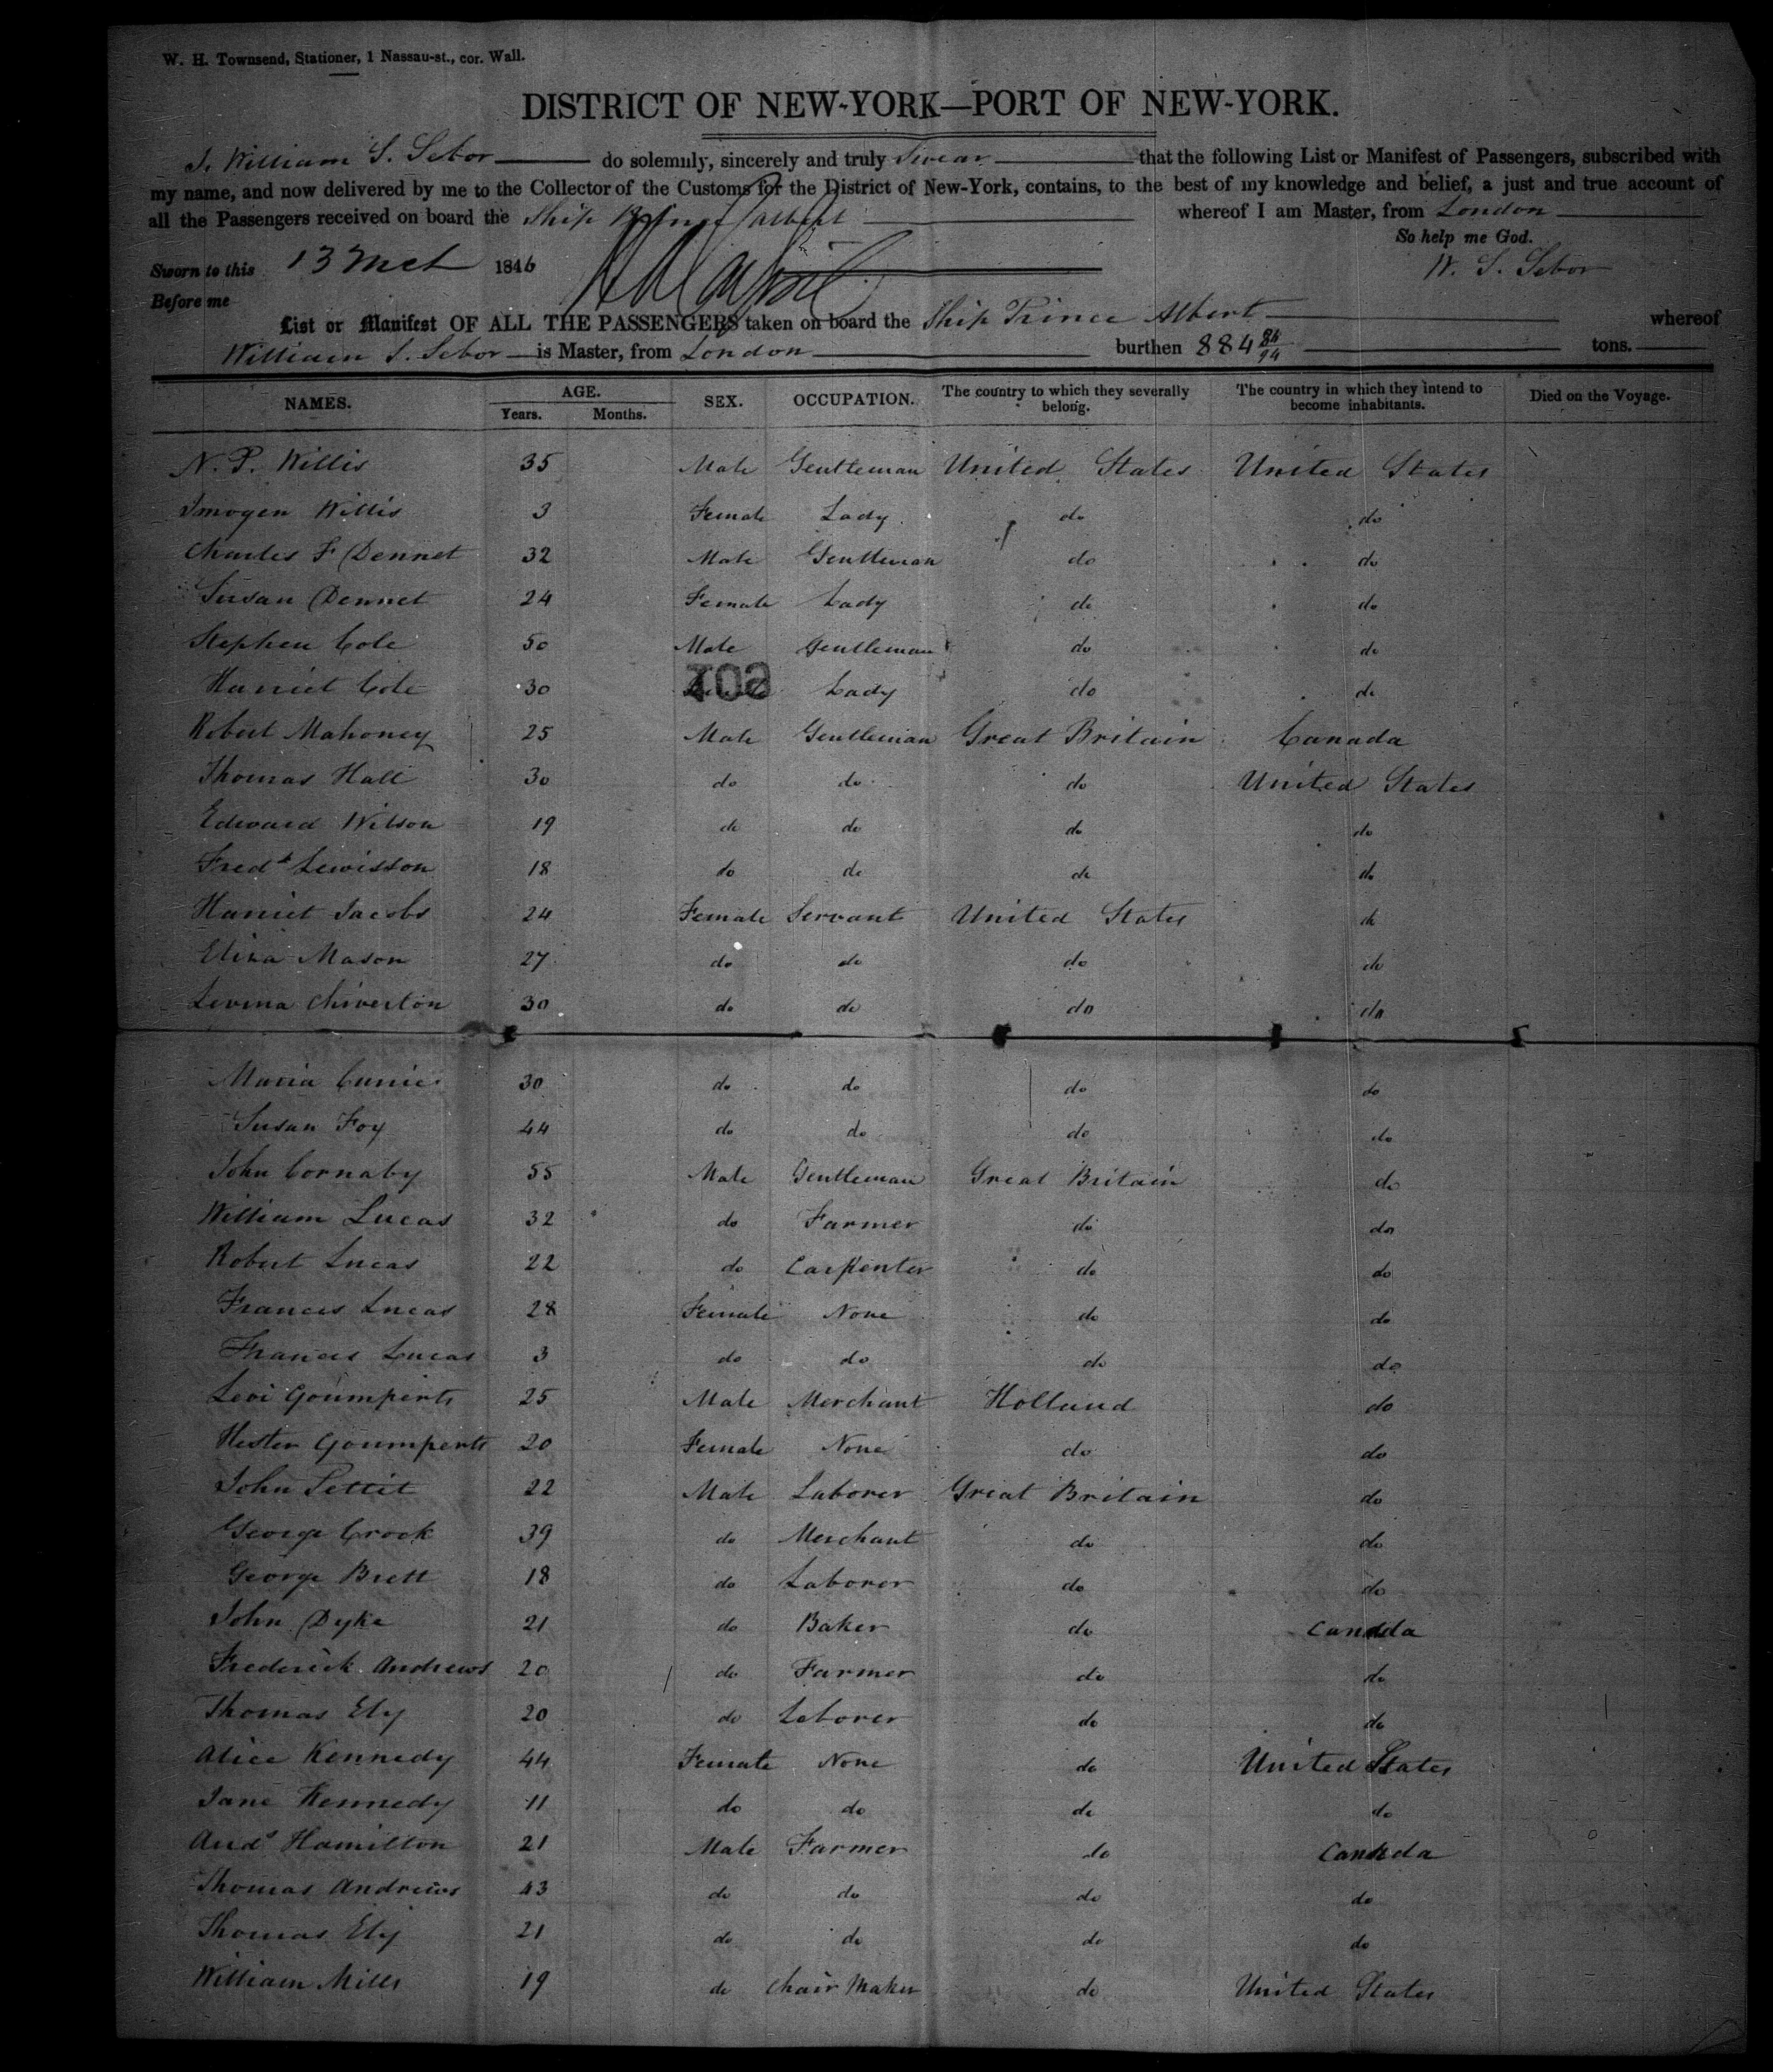 W. H. Townsend, Stationer, 1 Nassau-st., cor. Wall.
DISTRICT OF NEW-YORK—PORT OF NEW-YORK.
I, William S. Sebor do solemnly, sincerely and truly Swear that the following List or Manifest of Passengers, subscribed with
my name, and now delivered by me to the Collector of the Customs for the District of New-York, contains, to the best of my knowledge and belief, a just and true account of
all the Passengers received on board the Ship Prince Albert whereof I am Master, from London
So help me God.
Sworn to this 13 1846 W. S. Sebor
Before me
List or Manifest OF ALL THE PASSENGERS taken on board the Ship Prince Albert whereof
William S. Sebor is Master, from London burthen 884 tons.
NAMES. AGE. Years. Months. SEX. OCCUPATION. The country to which they severally belong. The country in which they intend to become inhabitants. Died on the Voyage.
N. P. Willis 35 Male Gentleman United States United States
Imogen Willis 3 Female Lady do do
Charles F Dennet 32 Male Gentleman do do
Susan Dennet 24 Female Lady do do
Stephen Cole 50 Male Gentleman do do
Harriet Cole 30 Lady do do
Robert Mahoney 25 Male Gentleman Great Britain Canada
Thomas Hall 30 do do do United States
Edward Wilson 19 do do do do
Fredk Lewisson 18 do do do do
Harriet Jacobs 24 Female Servant United States do
Eliza Mason 27 do do do do
Levina Chiverton 30 do do do do
Maria 30 do do do do
Susan Foy 44 do do do do
John Cornaby 55 Male Gentleman Great Britain do
William Lucas 32 do Farmer do do
Robert Lucas 22 do Carpenter do do
Frances Lucas 28 Female None do do
Frances Lucas 3 do do do do
Levi Goumperts 25 Male Merchant Holland do
Hester Goumperts 20 Female None do do
John Pettit 22 Male Laborer Great Britain do
George Crook 39 do Merchant do do
George Brett 18 do Laborer do do
John Dyke 21 do Baker do Canada
Frederick Andrews 20 do Farmer do do
Thomas Ely 20 do Laborer do do
Alice Kennedy 44 Female None do United States
Jane Kennedy 11 do do do do
Andw Hamilton 21 Male Farmer do Canada
Thomas Andrews 43 do do do do
Thomas Ely 21 do do do do
William Mills 19 do Chair Maker do United States